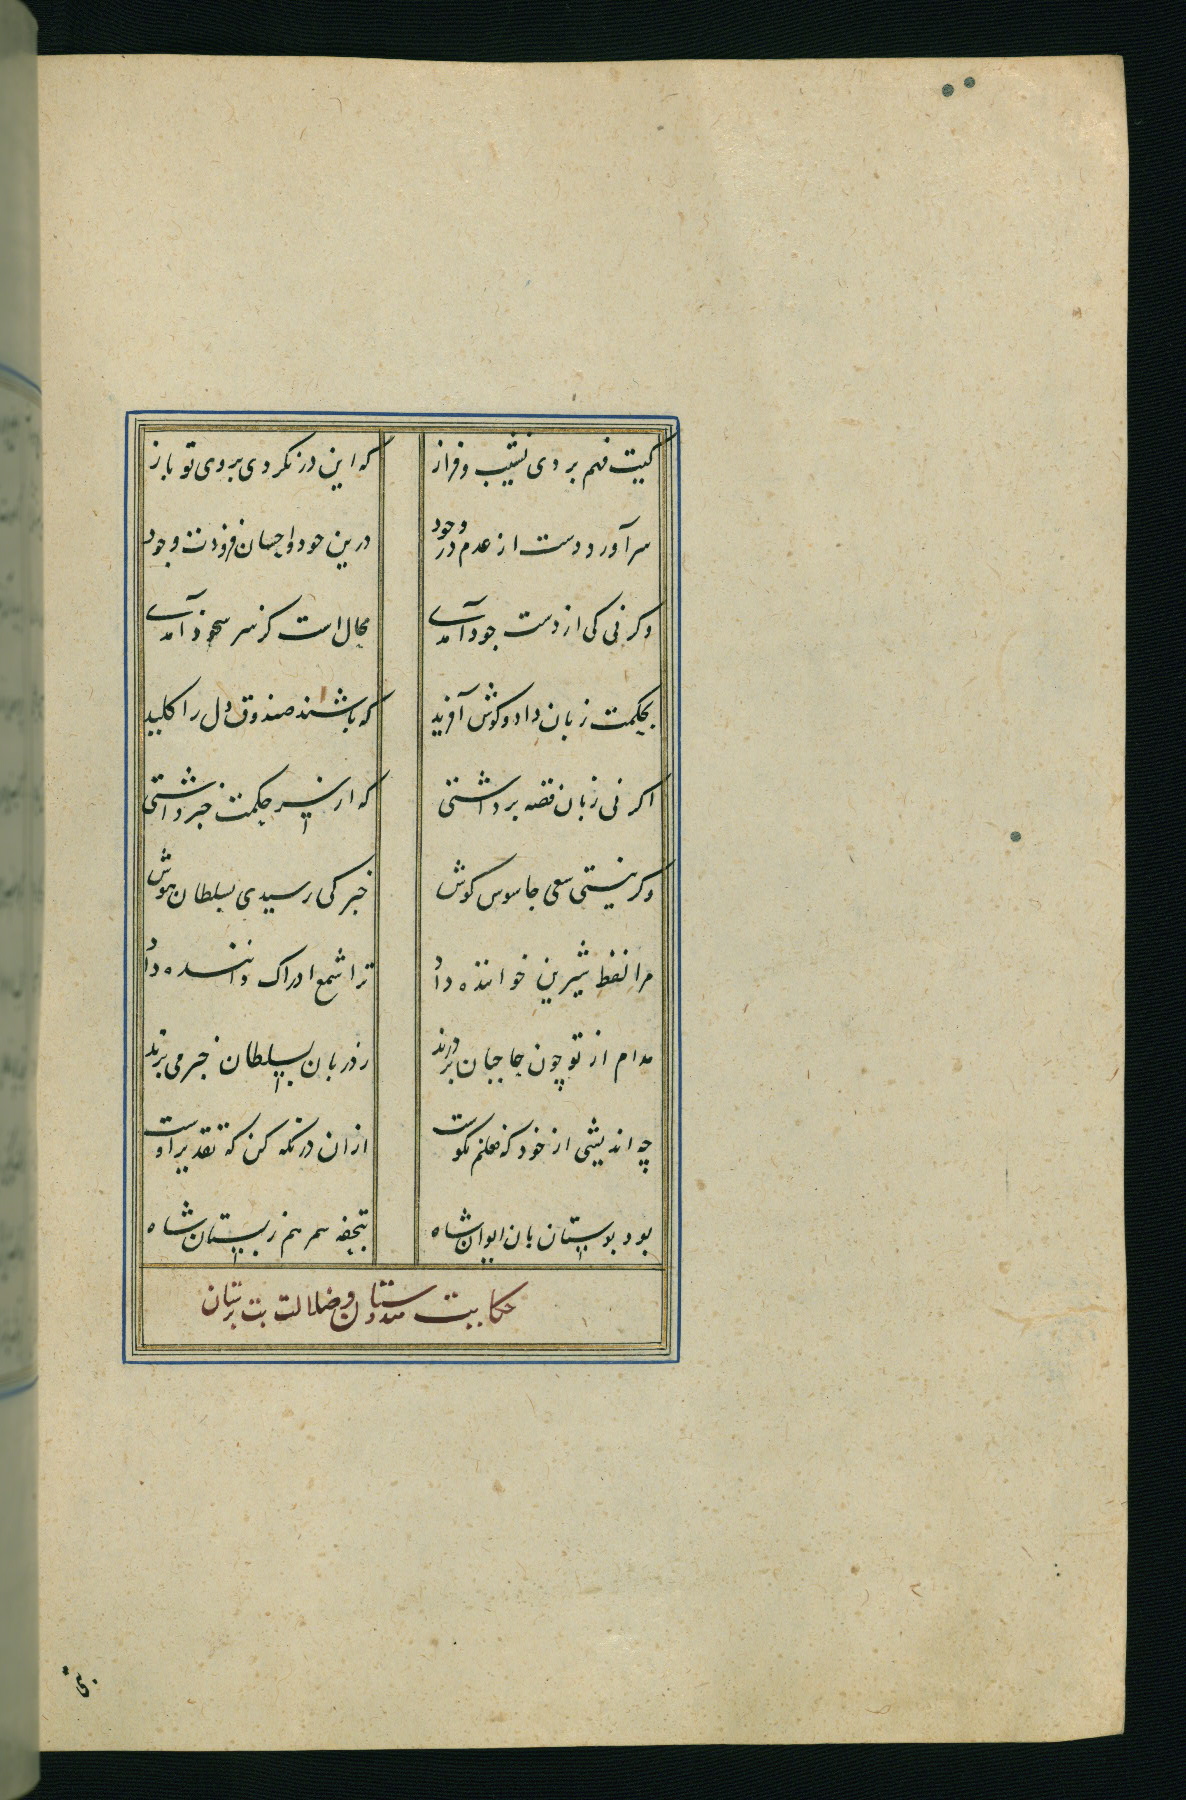 کیت فهم بردی نشیب و فراز که این در نکردی بروی تو باز
سرآورد و دست از عدم در وجود درین جود و احسان فزودت وجود
وکر نی کی از دست جود آمدی محال است کز سر سجود آمدی
بحکمت زبان داد و کوش آفرید که باشند صندوق دل را کلید
اکر نی زبان قصه برداشتی که از سر حکمت خبر داشتی
وکر نیستی سعی جاسوس کوش خبر کی رسیدی بسلطان هوش
مرا لفظ شیرین خواننده داد ترا شمع ادراک داننده داد
مدام از تو چون حاجبان بر درند ز دربان بسلطان خبر می برند
چه اندیشی از خود که فعلم نکوست ازان در نکه کن که تقدیر اوست
برد بوستان بان بایوان شاه بتحفه ثمر هم ز بستان شاه
حکایت هندوستان و ضلالت بت پرستان